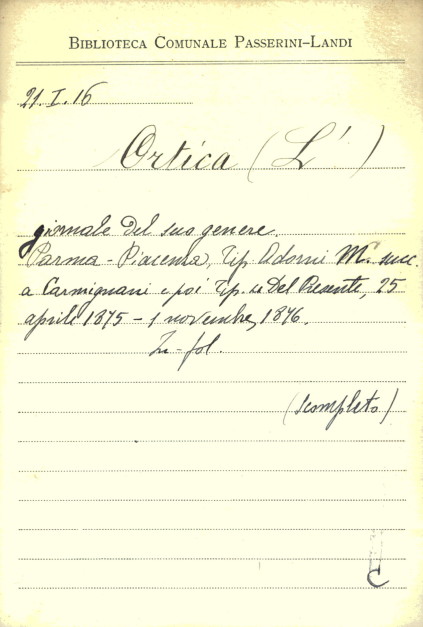 BIBLIOTECA COMUNALE PASSERINI-LANDI
21.I.16
Ortica (L')
giornale del suo genere.
Parma - Piacenza, Tip. Adorni M. succ.
a Carmignani e poi Tip. del Presente, 25
aprile 1875 - 1 novembre, 1876.
In-fol.
(scompleto)
C